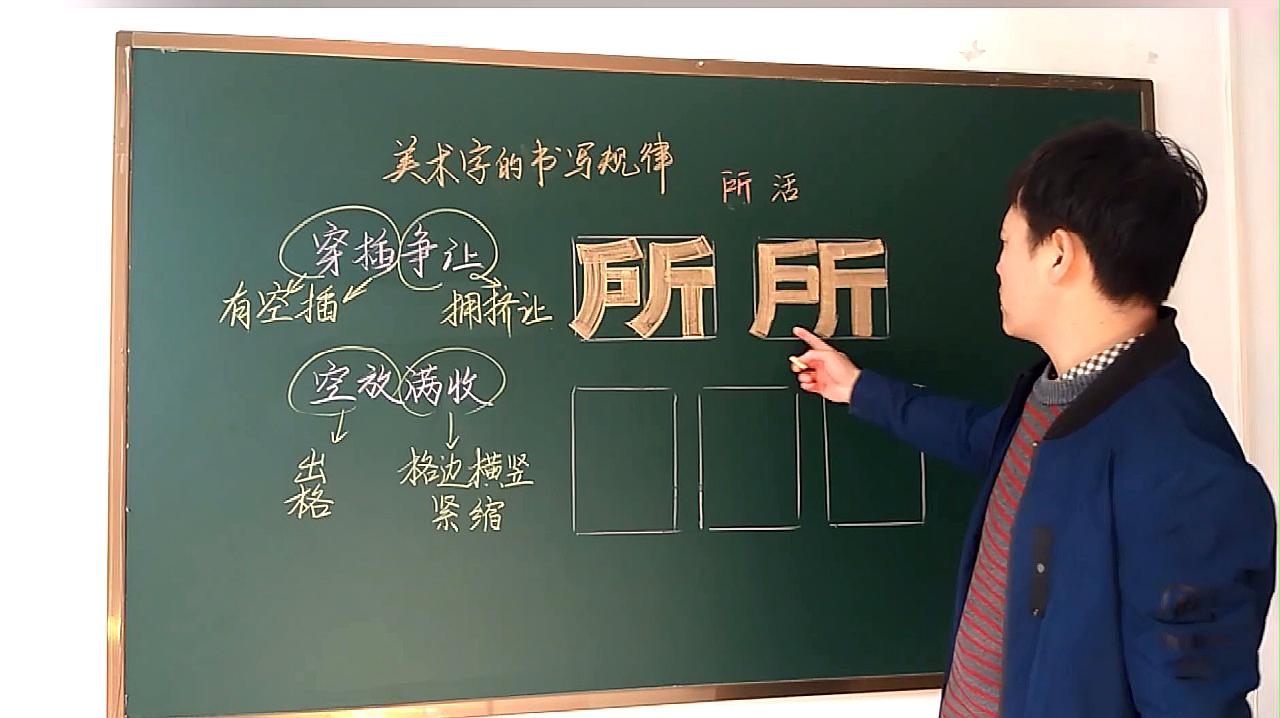 美术字的书写规律
所 活
穿插争让
有空插 拥挤让
所 所
空放满收
出格
格边横竖
紧缩